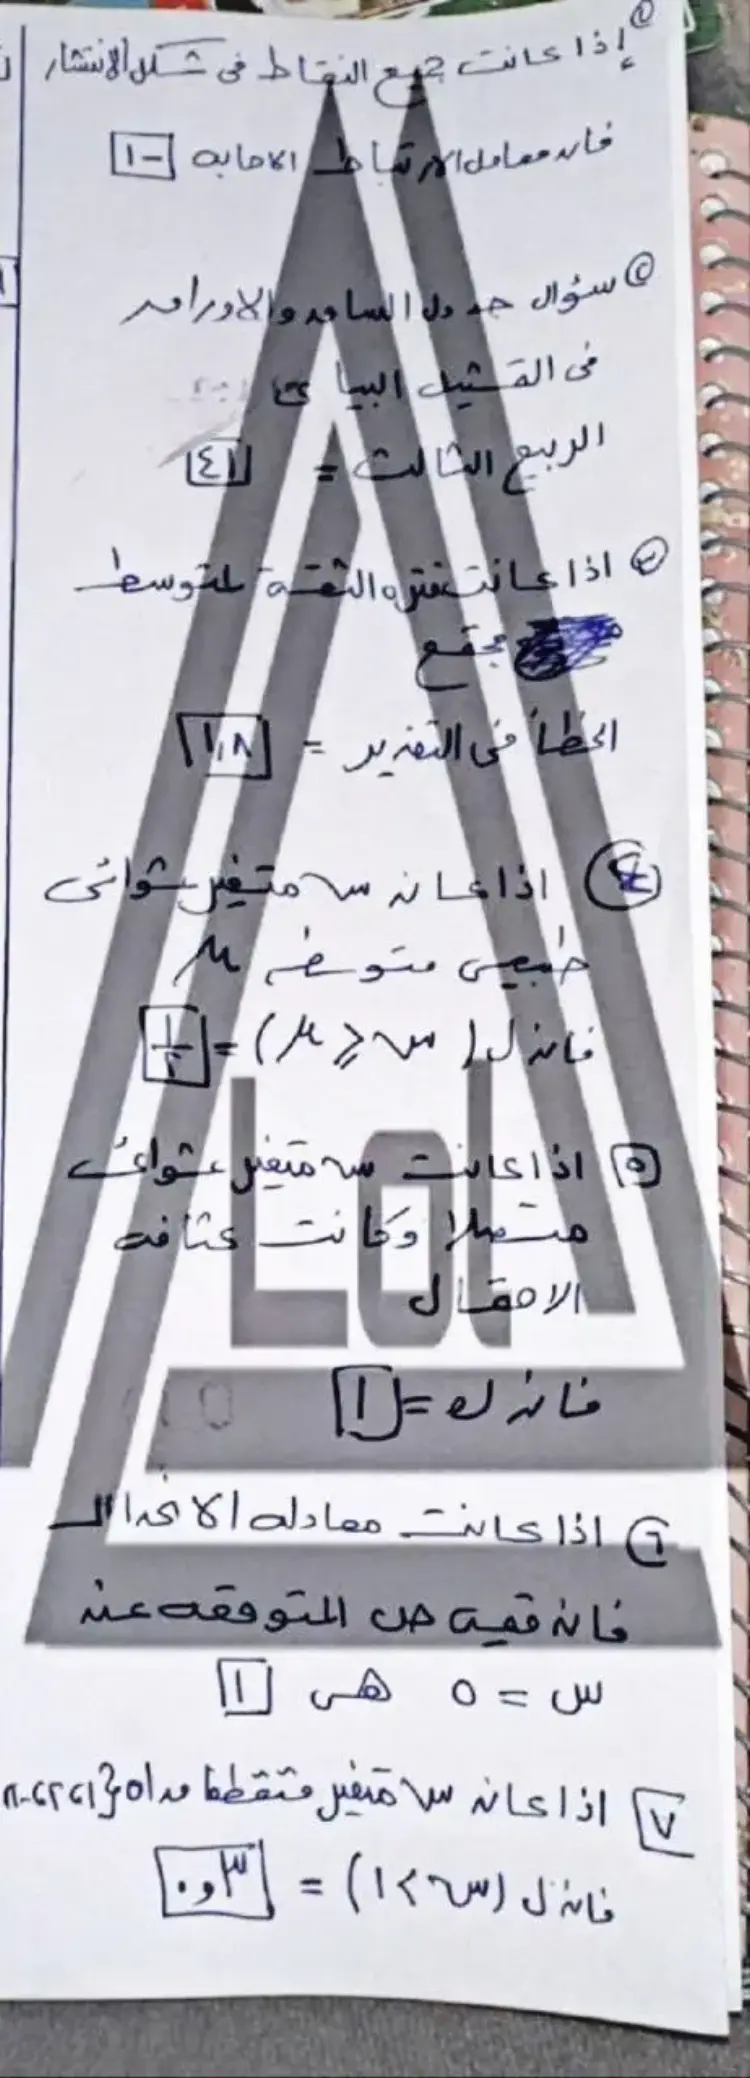 ① إذا كانت جميع النقاط في شكل الانتشار
فان معامل الارتباط الاجابه -١
② سؤال جدول الساق والاوراق
فى التمثيل البيانى
الربيع الثالث = ٤١
③ اذا كانت فتره الثقة لمتوسط
مجتمع
الخطأ فى التقدير = ١,٨
④ اذا كان س متغير عشوائى
طبيعى متوسطه μ
فان ل(س ≥ μ) = ١/٢
٥ اذا كانت س متغير عشوائى
متصلا وكانت كثافه
الاحتمال
فان ك = ١
٦ اذا كانت معادله الانحدار
فان قيمه ص المتوقعه عند
س = ٥ هى ١
٧ اذا كان س متغير متقطعا مداه
فان ل(س > ١) = ٠,٣
Lol